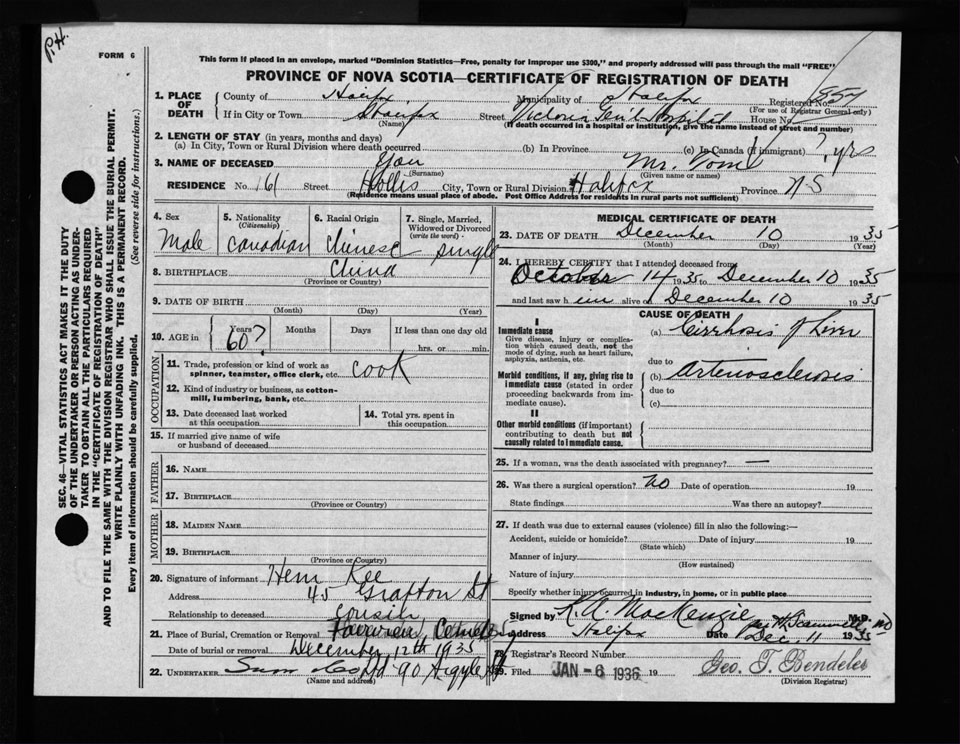 P.H.
FORM 6
This form if placed in an envelope, marked "Dominion Statistics—Free, penalty for improper use $300," and properly addressed will pass through the mail "FREE"
PROVINCE OF NOVA SCOTIA—CERTIFICATE OF REGISTRATION OF DEATH
SEC. 46—VITAL STATISTICS ACT MAKES IT THE DUTY
OF THE UNDERTAKER OR PERSON ACTING AS UNDER-
TAKER TO OBTAIN ALL THE PARTICULARS REQUIRED
IN THE "CERTIFICATE OF REGISTRATION OF DEATH"
AND TO FILE THE SAME WITH THE DIVISION REGISTRAR WHO SHALL ISSUE THE BURIAL PERMIT.
WRITE PLAINLY WITH UNFADING INK. THIS IS A PERMANENT RECORD.
Every item of information should be carefully supplied. (See reverse side for instructions.)
1. PLACE OF DEATH County of Halifax Municipality of Halifax Registered No. 857
(For use of Registrar General only)
If in City or Town Halifax Street Victoria Hospital House No.
(Name) (If death occurred in a hospital or institution, give the name instead of street and number)
2. LENGTH OF STAY (in years, months and days)
(a) In City, Town or Rural Division where death occurred (b) In Province (c) In Canada (if immigrant) ? yrs
3. NAME OF DECEASED Yow Mr.
(Surname) (Given name or names)
RESIDENCE No. 161 Street Hollis City, Town or Rural Division Halifax Province N.S
(Residence means usual place of abode. Post Office Address for residents in rural parts not sufficient)
4. Sex 5. Nationality (Citizenship) 6. Racial Origin 7. Single, Married, Widowed or Divorced (write the word)
Male Canadian Chinese single
8. BIRTHPLACE China
(Province or Country)
9. DATE OF BIRTH
(Month) (Day) (Year)
10. AGE in Years Months Days If less than one day old
60? hrs. or min.
OCCUPATION
11. Trade, profession or kind of work as spinner, teamster, office clerk, etc. cook
12. Kind of industry or business, as cotton-mill, lumbering, bank, etc.
13. Date deceased last worked at this occupation 14. Total yrs. spent in this occupation
15. If married give name of wife or husband of deceased
FATHER
16. NAME
17. BIRTHPLACE
(Province or Country)
MOTHER
18. MAIDEN NAME
19. BIRTHPLACE
(Province or Country)
20. Signature of informant Hem Kee
Address 45 Grafton St
Relationship to deceased cousin
21. Place of Burial, Cremation or Removal Fairview Cemetery
Date of burial or removal December 12th 1935
22. UNDERTAKER Snow Co Ltd 90 Argyle St
(Name and address)
MEDICAL CERTIFICATE OF DEATH
23. DATE OF DEATH December 10 1935
(Month) (Day) (Year)
24. I HEREBY CERTIFY that I attended deceased from
October 14 1935 to December 10 1935
and last saw him alive on December 10 1935
CAUSE OF DEATH
I
Immediate cause (a) Cirrhosis of Liver
Give disease, injury or complication which caused death, not the mode of dying, such as heart failure, asphyxia, asthenia, etc.
due to
Morbid conditions, if any, giving rise to immediate cause (stated in order proceeding backwards from immediate cause). (b) Arteriosclerosis
due to
(c)
II
Other morbid conditions (if important) contributing to death but not causally related to immediate cause.
25. If a woman, was the death associated with pregnancy? —
26. Was there a surgical operation? No Date of operation 19
State findings Was there an autopsy?
27. If death was due to external causes (violence) fill in also the following:—
Accident, suicide or homicide? Date of injury 19
(State which)
Manner of injury
(How sustained)
Nature of injury
Specify whether injury occurred in industry, in home, or in public place
Signed by K. A. MacKenzie M.D.
Address Halifax Date Dec. 11 1935
28. Registrar's Record Number
29. Filed JAN - 6 1936 19 Geo. T. Bendeler
(Division Registrar)